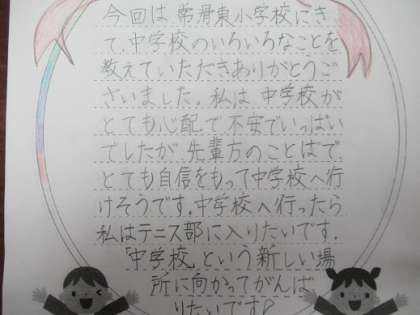 今回は、常滑東小学校にき
て、中学校のいろいろなことを
教えていただきありがとうご
ざいました。私は、中学校が
とても心配で、不安でいっぱい
でしたが、先輩方のことばで、
とても自信をもって中学校へ行
けそうです。中学校へ行ったら
私はテニス部に入りたいです。
「中学校」という新しい場
所に向かってがんば
りたいです♡